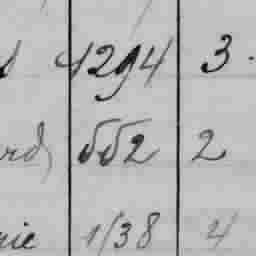 1294 3.
rd, 552 2
rie 1138 4